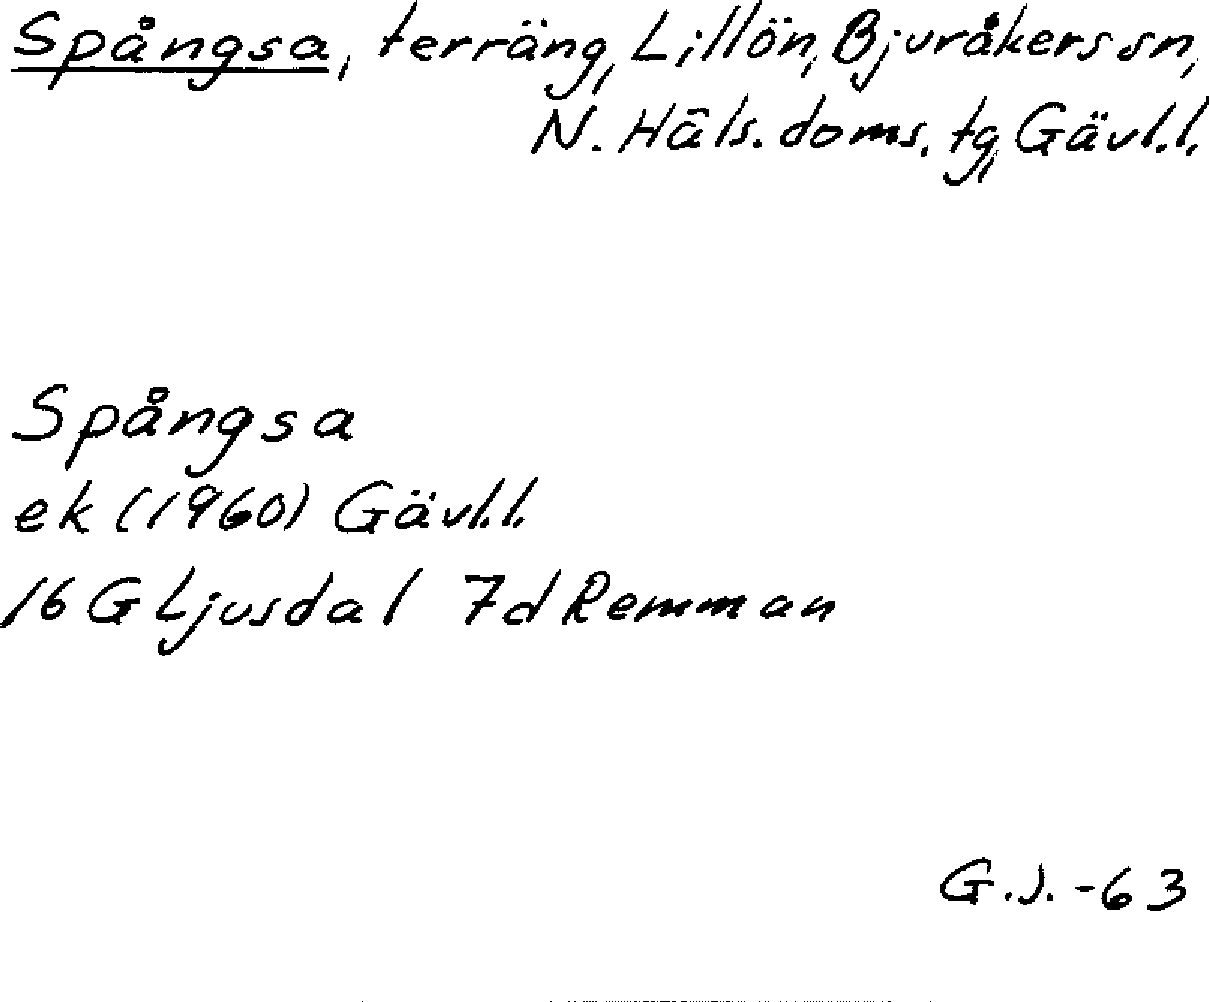 Spångsa, terräng, Lillön, Bjuråkers sn,
N. Häls. doms. tg, Gävl.l.
Spångsa
ek (1960) Gävl.l.
16 G Ljusdal 7d Remman
G.J. -63